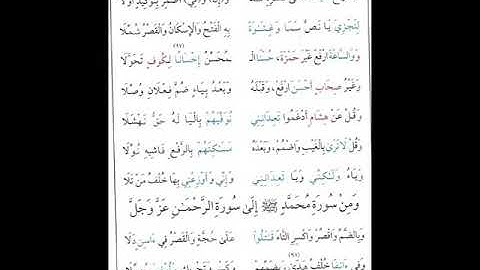 لِنَجْزِيَ يَا نَصٌّ سَمَا وَغِشَـٰوَةً بِهِ الْفَتْحُ وَالْإِسْكَانُ وَالْقَصْرُ شُمِّلَا
وَوَالسَّاعَةَ ارْفَعْ غَيْرَ حَمْزَةَ، حُسْنًا الْـ ـمُحَسِّنُ إِحْسَـٰنًا لِكُوفٍ تَحَوَّلَا
وَغَيْرُ صِحَابٍ أَحْسَنَ ارْفَعْ، وَقَبْلَهُ وَبَعْدُ بِيَاءٍ ضُمَّ فِعْلَانِ وُصِّلَا
وَقُلْ عَنْ هِشَامٍ أَدْغَمُوا تَعِدَانِنِي نُوَفِّيَهُمْ بِالْيَا لَهُ حَقُّ نَهْشَلَا
وَقُلْ لَا تَرَى بِالْغَيْبِ وَاضْمُمْ، وَبَعْدَهُ مَسَـٰكِنَهُمْ بِالرَّفْعِ فَاشِيهِ نُوِّلَا
وَيَاءُ وَلَـٰكِنِّي وَيَا تَعِدَانِنِي وَإِنِّي وَأَوْزِعْنِي بِهَا خُلْفُ مَنْ تَلَا
وَمِنْ سُورَةِ مُحَمَّدٍ ﷺ إِلَىٰ سُورَةِ الرَّحْمَـٰنِ عَزَّ وَجَلَّ
وَبِالضَّمِّ وَاقْصُرْ وَاكْسِرِ التَّاءَ قَـٰتَلُوا عَلَىٰ حُجَّةٍ وَالْقَصْرُ فِي ءَاسِنٍ دَلَا
وَفِي ءَانِفًا خُلْفٌ هَدَىٰ، وَبِضَمِّهِمْ